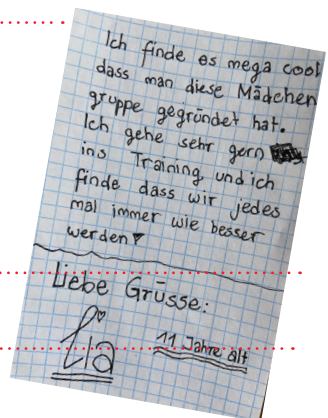 Ich finde es mega cool
dass man diese Mädchen
gruppe gegründet hat.
Ich gehe sehr gern
ins Training und ich
finde dass wir jedes
mal immer wie besser
werden
Liebe Grüsse:
Lia
11 Jahre alt